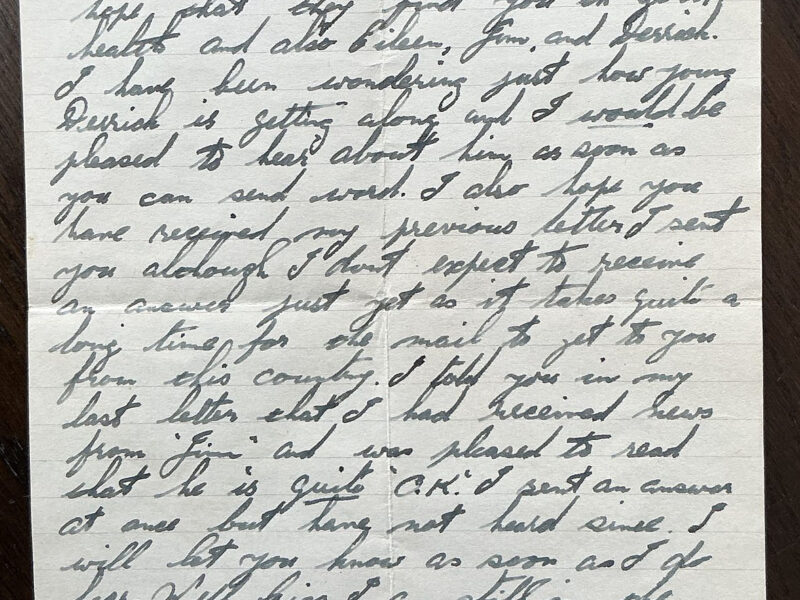 hope that they find you in good
health and also Eileen, Jim, and Derrick.
I have been wondering just how young
Derrick is getting along and I would be
pleased to hear about him as soon as
you can send word. I also hope you
have received my previous letter I sent
you although I dont expect to receive
an answer just yet as it takes quite a
long time for the mail to get to you
from this country. I told you in my
last letter that I had received news
from "Jim" and was pleased to read
that he is quite "O.K." I sent an answer
at once but have not heard since. I
will let you know as soon as I do
Well I am still in the